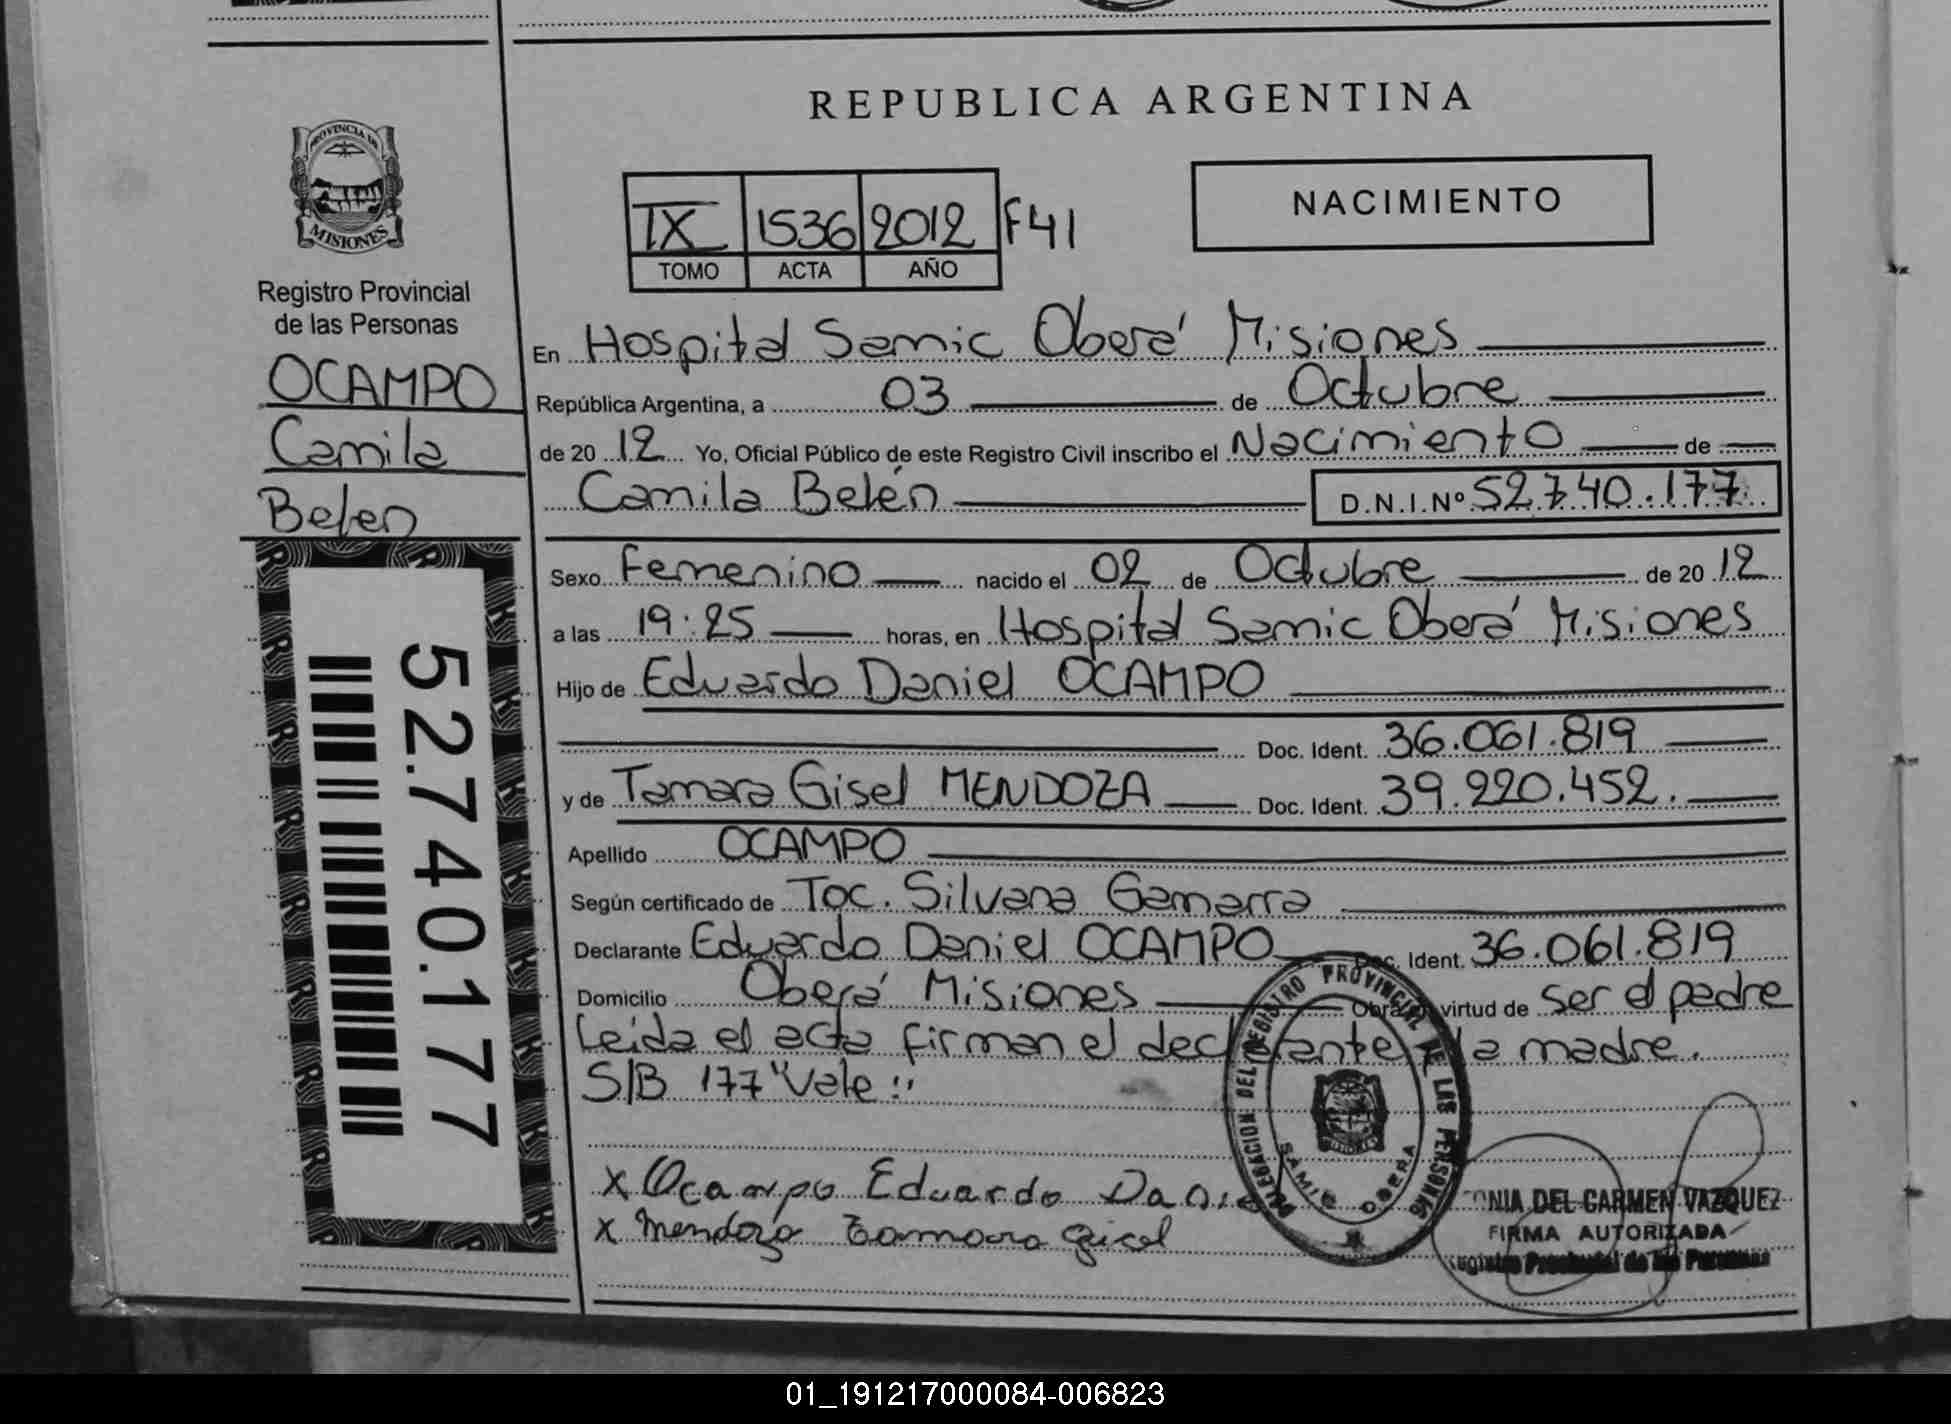 REPUBLICA ARGENTINA
PROVINCIA DE
MISIONES
Registro Provincial
de las Personas
OCAMPO
Camila
Belen
52.740.177
IX 1536 2012 F41
TOMO ACTA AÑO
NACIMIENTO
En Hospital Samic Oberá Misiones
República Argentina, a 03 de Octubre
de 20 12 Yo, Oficial Público de este Registro Civil inscribo el Nacimiento de
Camila Belén D.N.I.Nº 52.740.177
Sexo Femenino nacido el 02 de Octubre de 20 12
a las 19:25 horas, en Hospital Samic Oberá Misiones
Hijo de Eduardo Daniel OCAMPO
Doc. Ident. 36.061.819
y de Tamara Gisel MENDOZA Doc. Ident. 39.220.452.
Apellido OCAMPO
Según certificado de Toc. Silvana Gamarra
Declarante Eduardo Daniel OCAMPO Doc. Ident. 36.061.819
Domicilio Oberá Misiones Obra virtud de ser el padre
Leida el acta firman el declarante la madre.
S/B 177 "Vale"
DELEGACION DEL REGISTRO PROVINCIAL DE LAS PERSONAS
SAMIC OBERA
x Ocampo Eduardo Daniel
x Mendoza Tamara Gisel
DEL CARMEN VAZQUEZ
FIRMA AUTORIZADA
Registro Provincial de las Personas
01_191217000084-006823